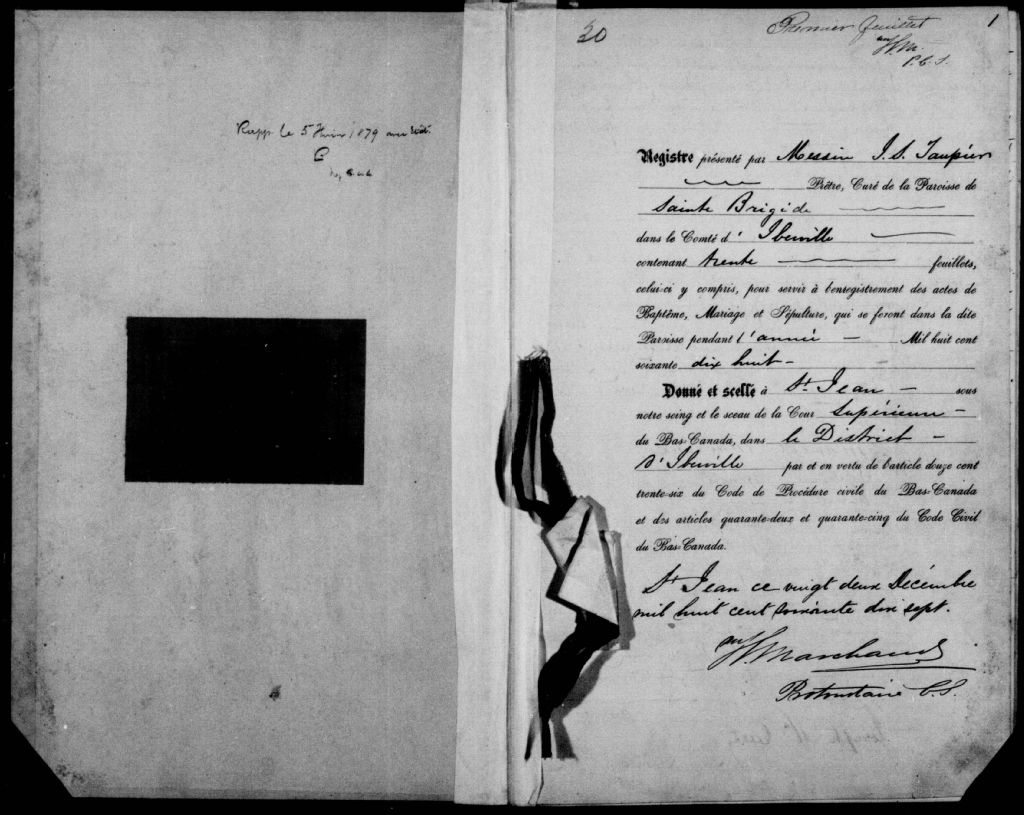 Rapp. le 5 1879
30
Premier feuillet
1
H.M.
P.C.S.
Registre présenté par Messire J. S. Taupier
Prêtre, Curé de la Paroisse de
Sainte Brigide
dans le Comté d' Iberville
contenant trente feuillets,
celui-ci y compris, pour servir à l'enregistrement des actes de
Baptême, Mariage et Sépulture, qui se feront dans la dite
Paroisse pendant l'année — Mil huit cent
soixante dix huit —
Donné et scellé à St Jean — sous
notre seing et le sceau de la Cour Supérieure —
du Bas-Canada, dans le District —
d'Iberville par et en vertu de l'article douze cent
trente-six du Code de Procédure civile du Bas-Canada
et des articles quarante-deux et quarante-cinq du Code Civil
du Bas-Canada.
St Jean ce vingt deux Décembre
mil huit cent soixante dix sept.
H. Marchand
Protonotaire C.S.